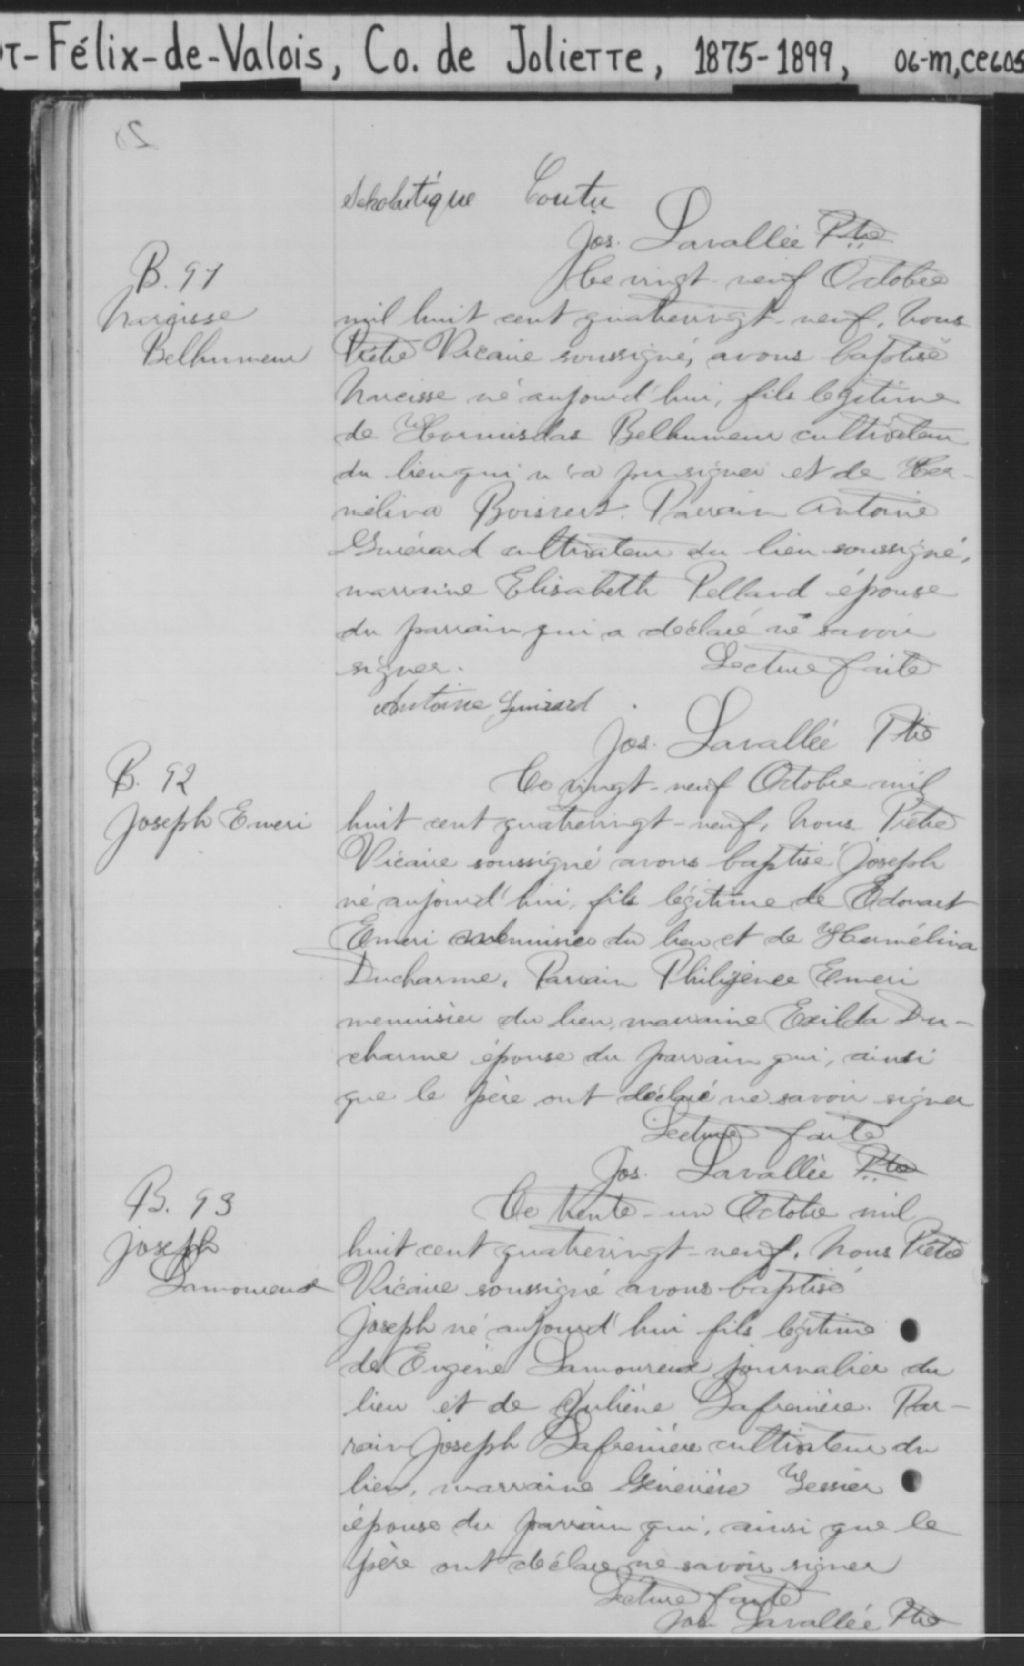 T-Félix-de-Valois, Co. de Joliette, 1875-1899, 06-m,ce605
Scholastique Coutu
Jos. Lavallée Ptre
B. 91
Narcisse
Belhumeur
Ce vingt-neuf Octobre
mil huit cent quatrevingt-neuf, Nous
Prêtre Vicaire soussigné, avons baptisé
Narcisse né aujourd'hui, fils légitime
de Hormisdas Belhumeur cultivateur
du lieu qui n'a pu signer et de Her-
mélina Boisvert. Parrain Antoine
Guérard cultivateur du lieu soussigné,
marraine Elisabeth Pelland épouse
du parrain qui a déclaré ne savoir
signer. Lecture faite
Antoine Guirard
Jos. Lavallée Ptre
B. 92
Joseph Emeri
Ce vingt-neuf Octobre mil
huit cent quatrevingt-neuf, Nous Prêtre
Vicaire soussigné avons baptisé Joseph
né aujourd'hui, fils légitime de Edouart
Emeri menuisier du lieu et de Herméline
Ducharme. Parrain Emeri
menuisier du lieu, marraine Exilda Du-
charme épouse du parrain qui, ainsi
que le père ont déclaré ne savoir signer
Lecture faite
Jos. Lavallée Ptre
B. 93
Joseph
Lamoureux
Ce trente-un Octobre mil
huit cent quatrevingt-neuf, Nous Prêtre
Vicaire soussigné avons baptisé
Joseph né aujourd'hui fils légitime
de Eugène Lamoureux journalier du
lieu et de Julienne Lafrenière. Par-
rain Joseph Lafrenière cultivateur du
lieu, marraine Génévière
épouse du parrain qui, ainsi que le
père ont déclaré ne savoir signer
Lecture faite
Jos. Lavallée Ptre